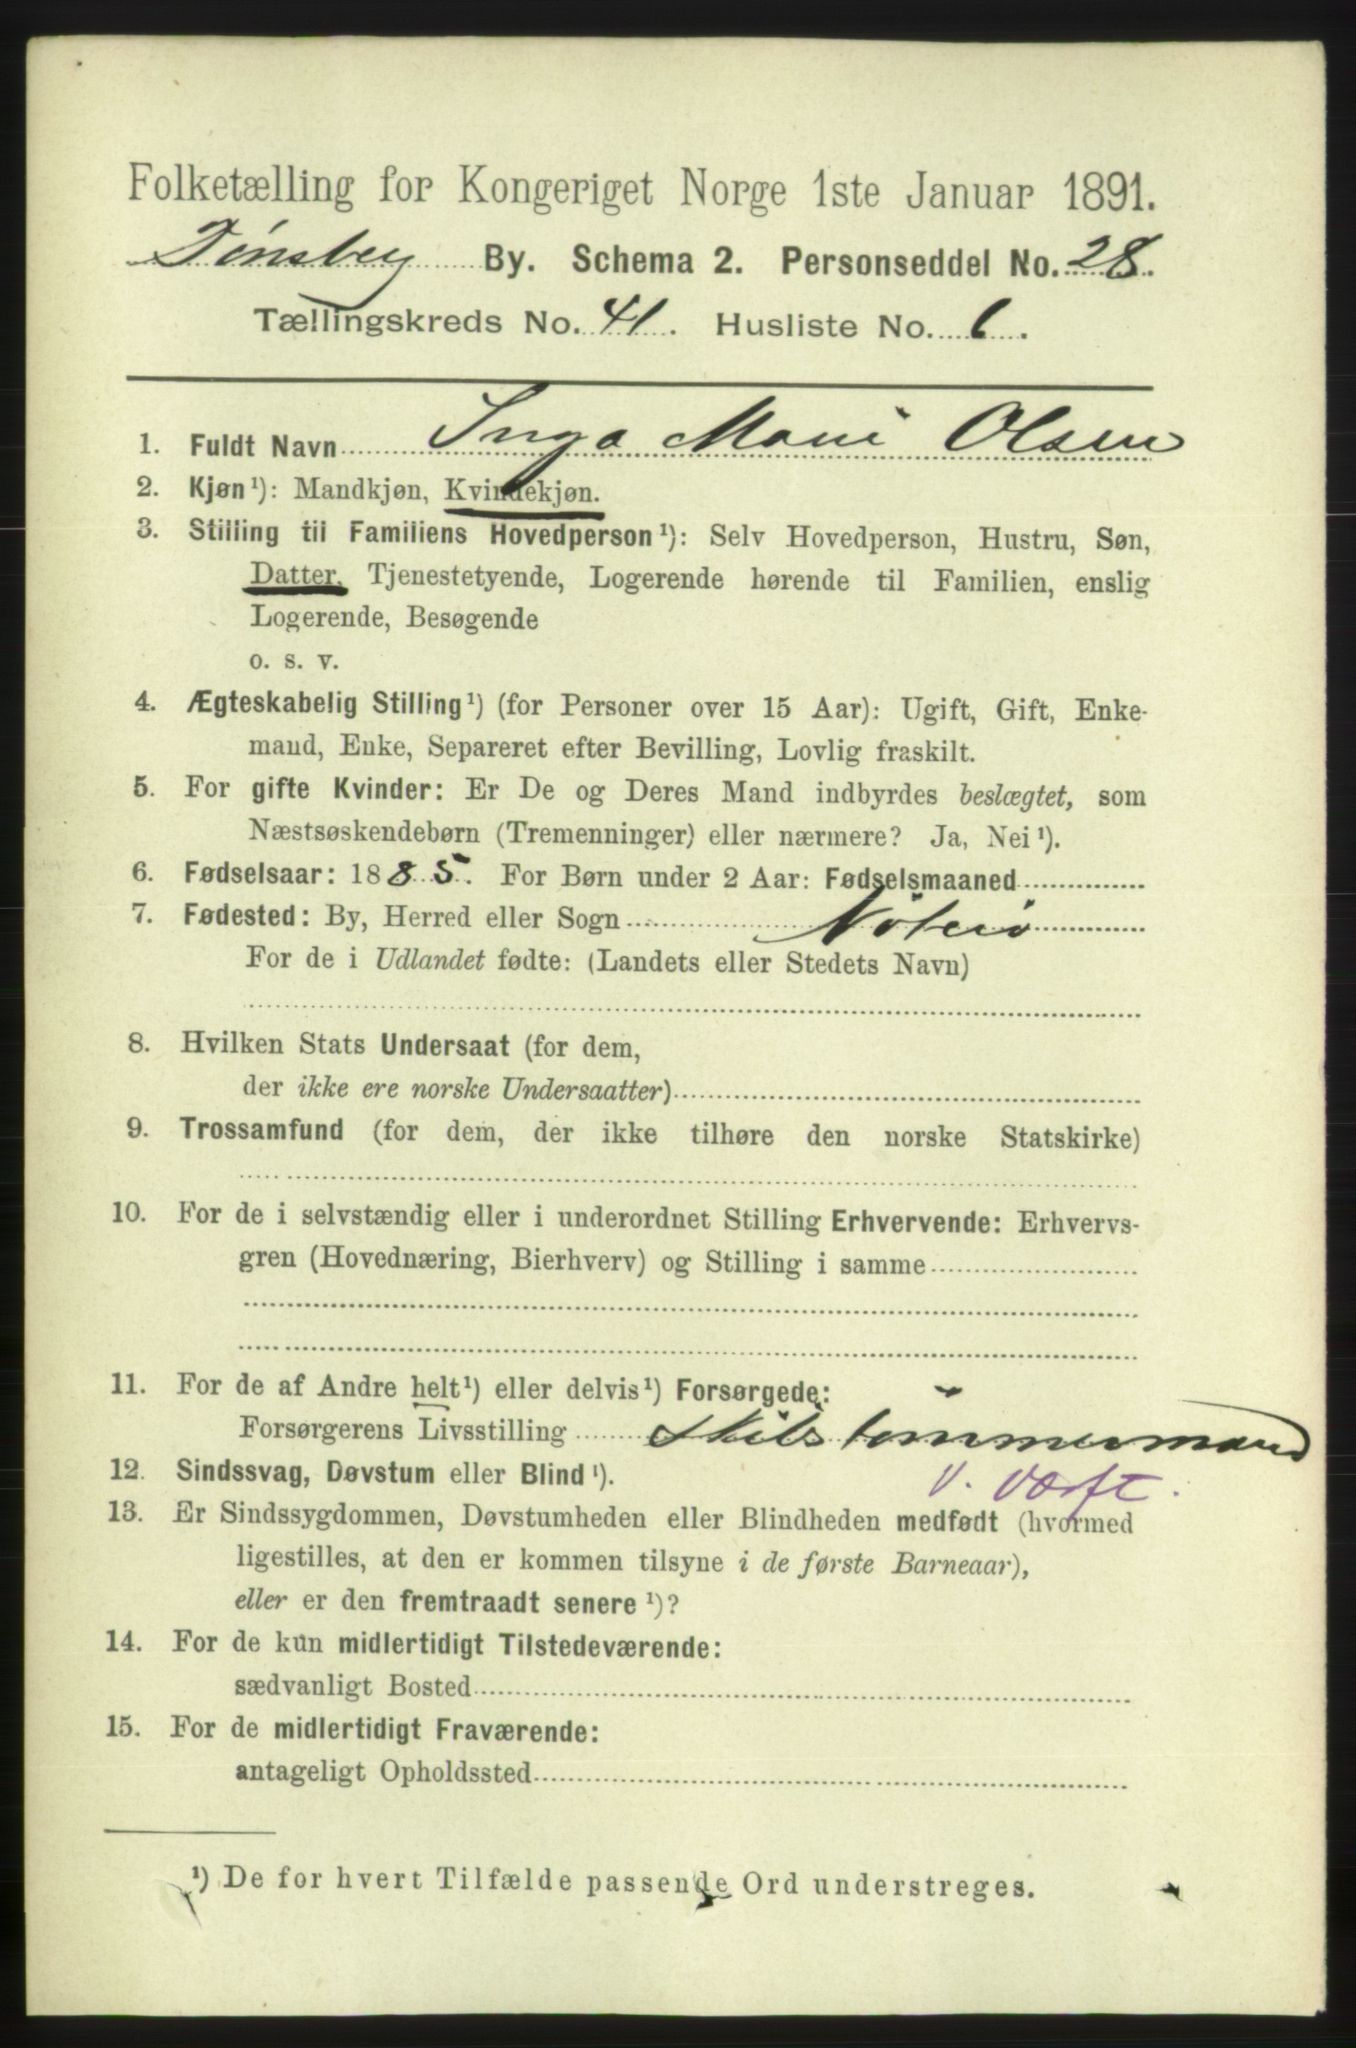 Folketælling for Kongeriget Norge 1ste Januar 1891.
Tønsberg By. Schema 2. Personseddel No. 28.
Tællingskreds No. 41. Husliste No. 6.
1. Fuldt Navn Inga Marie Olsen
2. Kjøn¹): Mandkjøn, Kvindekjøn.
3. Stilling til Familiens Hovedperson¹): Selv Hovedperson, Hustru, Søn,
Datter, Tjenestetyende, Logerende hørende til Familien, enslig
Logerende, Besøgende
o. s. v.
4. Ægteskabelig Stilling¹) (for Personer over 15 Aar): Ugift, Gift, Enke-
mand, Enke, Separeret efter Bevilling, Lovlig fraskilt.
5. For gifte Kvinder: Er De og Deres Mand indbyrdes beslægtet, som
Næstsøskendebørn (Tremenninger) eller nærmere? Ja, Nei¹).
6. Fødselsaar: 1885. For Børn under 2 Aar: Fødselsmaaned
7. Fødested: By, Herred eller Sogn Nøterø
For de i Udlandet fødte: (Landets eller Stedets Navn)
8. Hvilken Stats Undersaat (for dem,
der ikke ere norske Undersaatter)
9. Trossamfund (for dem, der ikke tilhøre den norske Statskirke)
10. For de i selvstændig eller i underordnet Stilling Erhvervende: Erhvervs-
gren (Hovednæring, Bierhverv) og Stilling i samme
11. For de af Andre helt¹) eller delvis¹) Forsørgede:
Forsørgerens Livsstilling Skibstømmermand
v. Værft.
12. Sindssvag, Døvstum eller Blind¹).
13. Er Sindssygdommen, Døvstumheden eller Blindheden medfødt (hvormed
ligestilles, at den er kommen tilsyne i de første Barneaar),
eller er den fremtraadt senere¹)?
14. For de kun midlertidigt Tilstedeværende:
sædvanligt Bosted
15. For de midlertidigt Fraværende:
antageligt Opholdssted
¹) De for hvert Tilfælde passende Ord understreges.